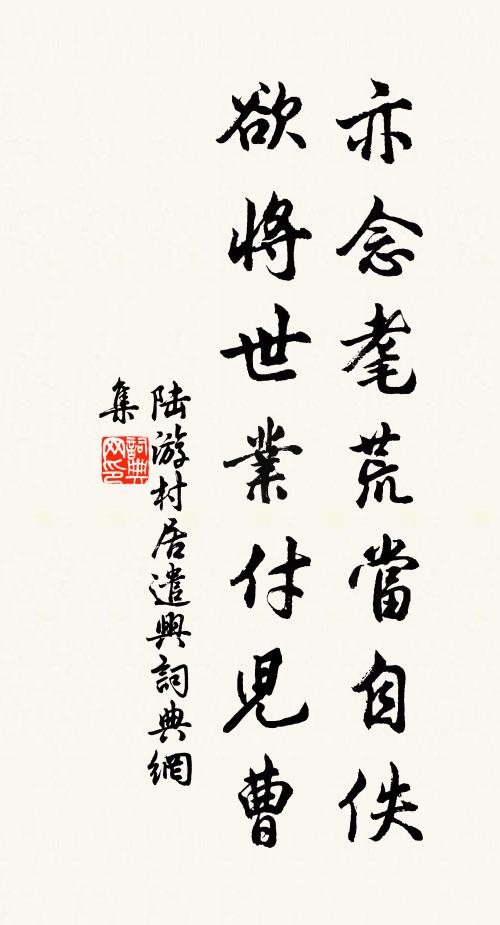 亦念耄荒當自佚
欲將世業付兒曹
陆游村居遣興詞典網
集
詞典
网印